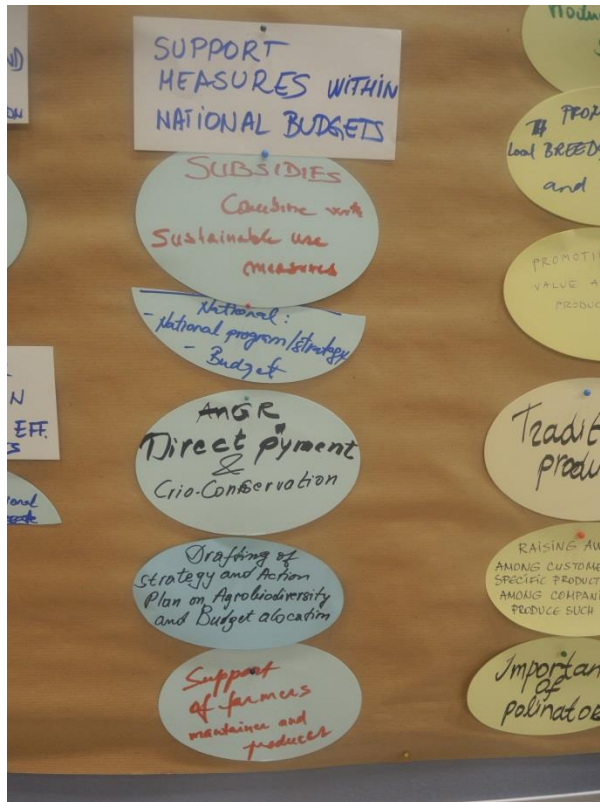 SUPPORT
MEASURES WITHIN
NATIONAL BUDGETS
SUBSIDIES
Combine with
Sustainable use
measures
National:
- National program/strategy
- Budget
AnGR
Direct pyment
&
Crio-Conservation
Drafting of
strategy and Action
Plan on Agrobiodiversity
and Budget alocation
Support
of farmers
maintainer and
producer
N
EFF.
TH PROM
Local BREEDS
and
PROMOTI
VALUE A
PRODUC
Tradit
produ
RAISING AW
AMONG CUSTOME
SPECIFIC PRODUCT
AMONG COMPANI
PRODUCE SUCH
Importan
of
polinato